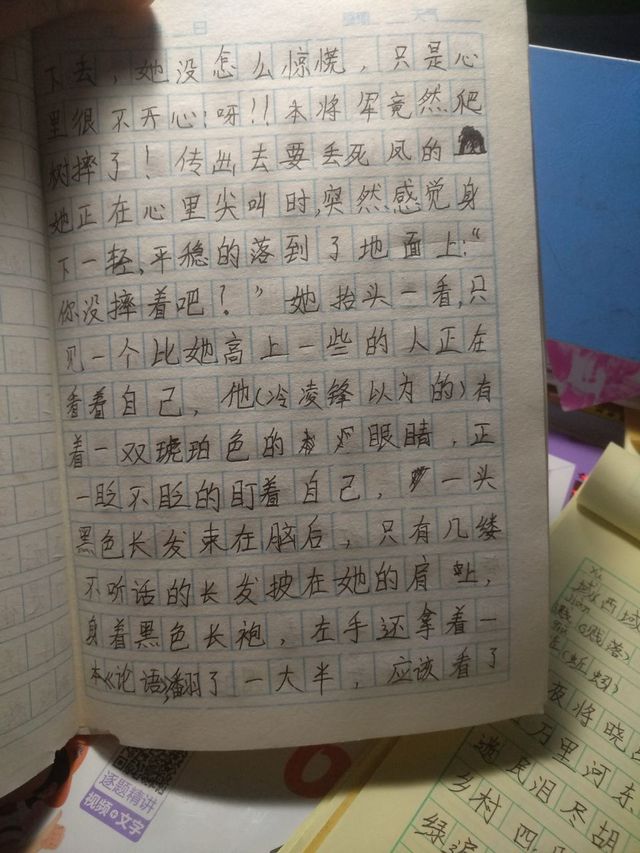 日 天气
下去，她没怎么惊慌，只是心
里很不开心：呀!!本将军竟然爬
树摔了！传出去要丢死风的
她正在心里尖叫时,突然感觉身
下一轻,平稳的落到了地面上:“
你没摔着吧？”她抬头一看,只
见一个比她高上一些的人正在
看着自己，他(冷凌锋以为的)有
着一双琥珀色的眼睛，正
一眨不眨的盯着自己，一头
黑色长发束在脑后，只有几缕
不听话的长发披在她的肩上，
身着黑色长袍，左手还拿着一
本《论语》翻了一大半，应该看了
逐题精讲
视频+文字
城西域
(蚯蚓)
夜将晓出
万里河东
遗民泪尽胡
乡村四
绿遍